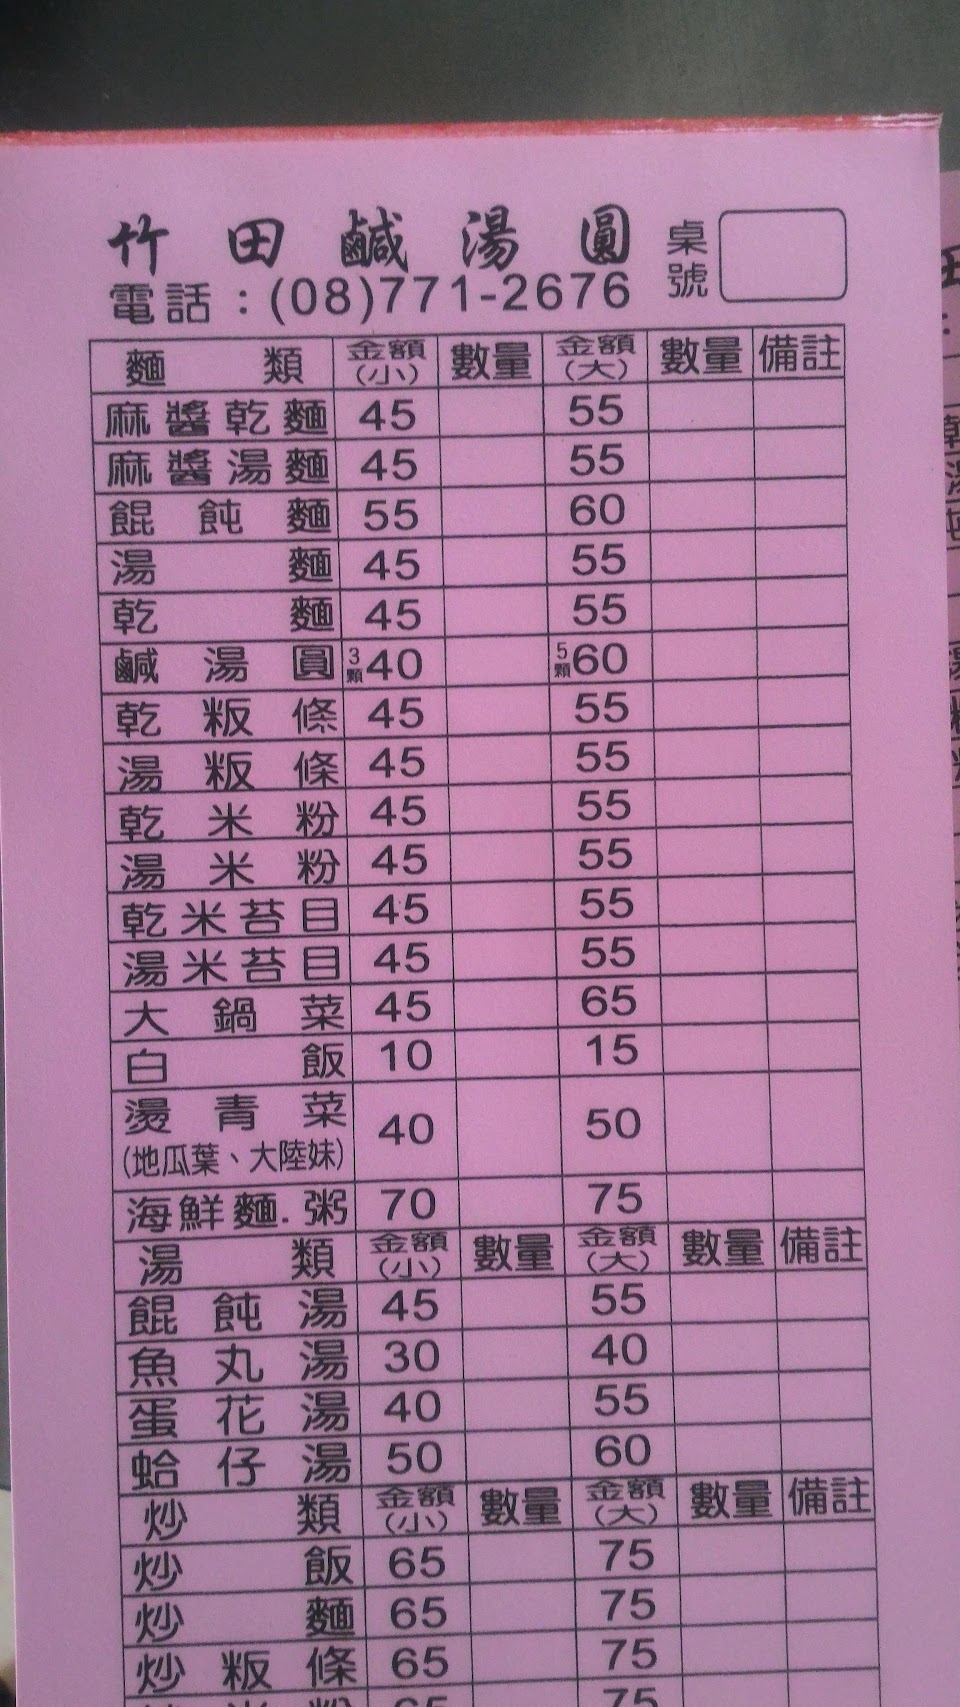 竹田鹹湯圓 桌號
電話：(08)771-2676
麵類 金額(小) 數量 金額(大) 數量 備註
麻醬乾麵 45 55
麻醬湯麵 45 55
餛飩麵 55 60
湯麵 45 55
乾麵 45 55
鹹湯圓 3顆40 5顆60
乾粄條 45 55
湯粄條 45 55
乾米粉 45 55
湯米粉 45 55
乾米苔目 45 55
湯米苔目 45 55
大鍋菜 45 65
白飯 10 15
燙青菜 40 50
(地瓜葉、大陸妹)
海鮮麵.粥 70 75
湯類 金額(小) 數量 金額(大) 數量 備註
餛飩湯 45 55
魚丸湯 30 40
蛋花湯 40 55
蛤仔湯 50 60
炒類 金額(小) 數量 金額(大) 數量 備註
炒飯 65 75
炒麵 65 75
炒粄條 65 75
米粉 65 75